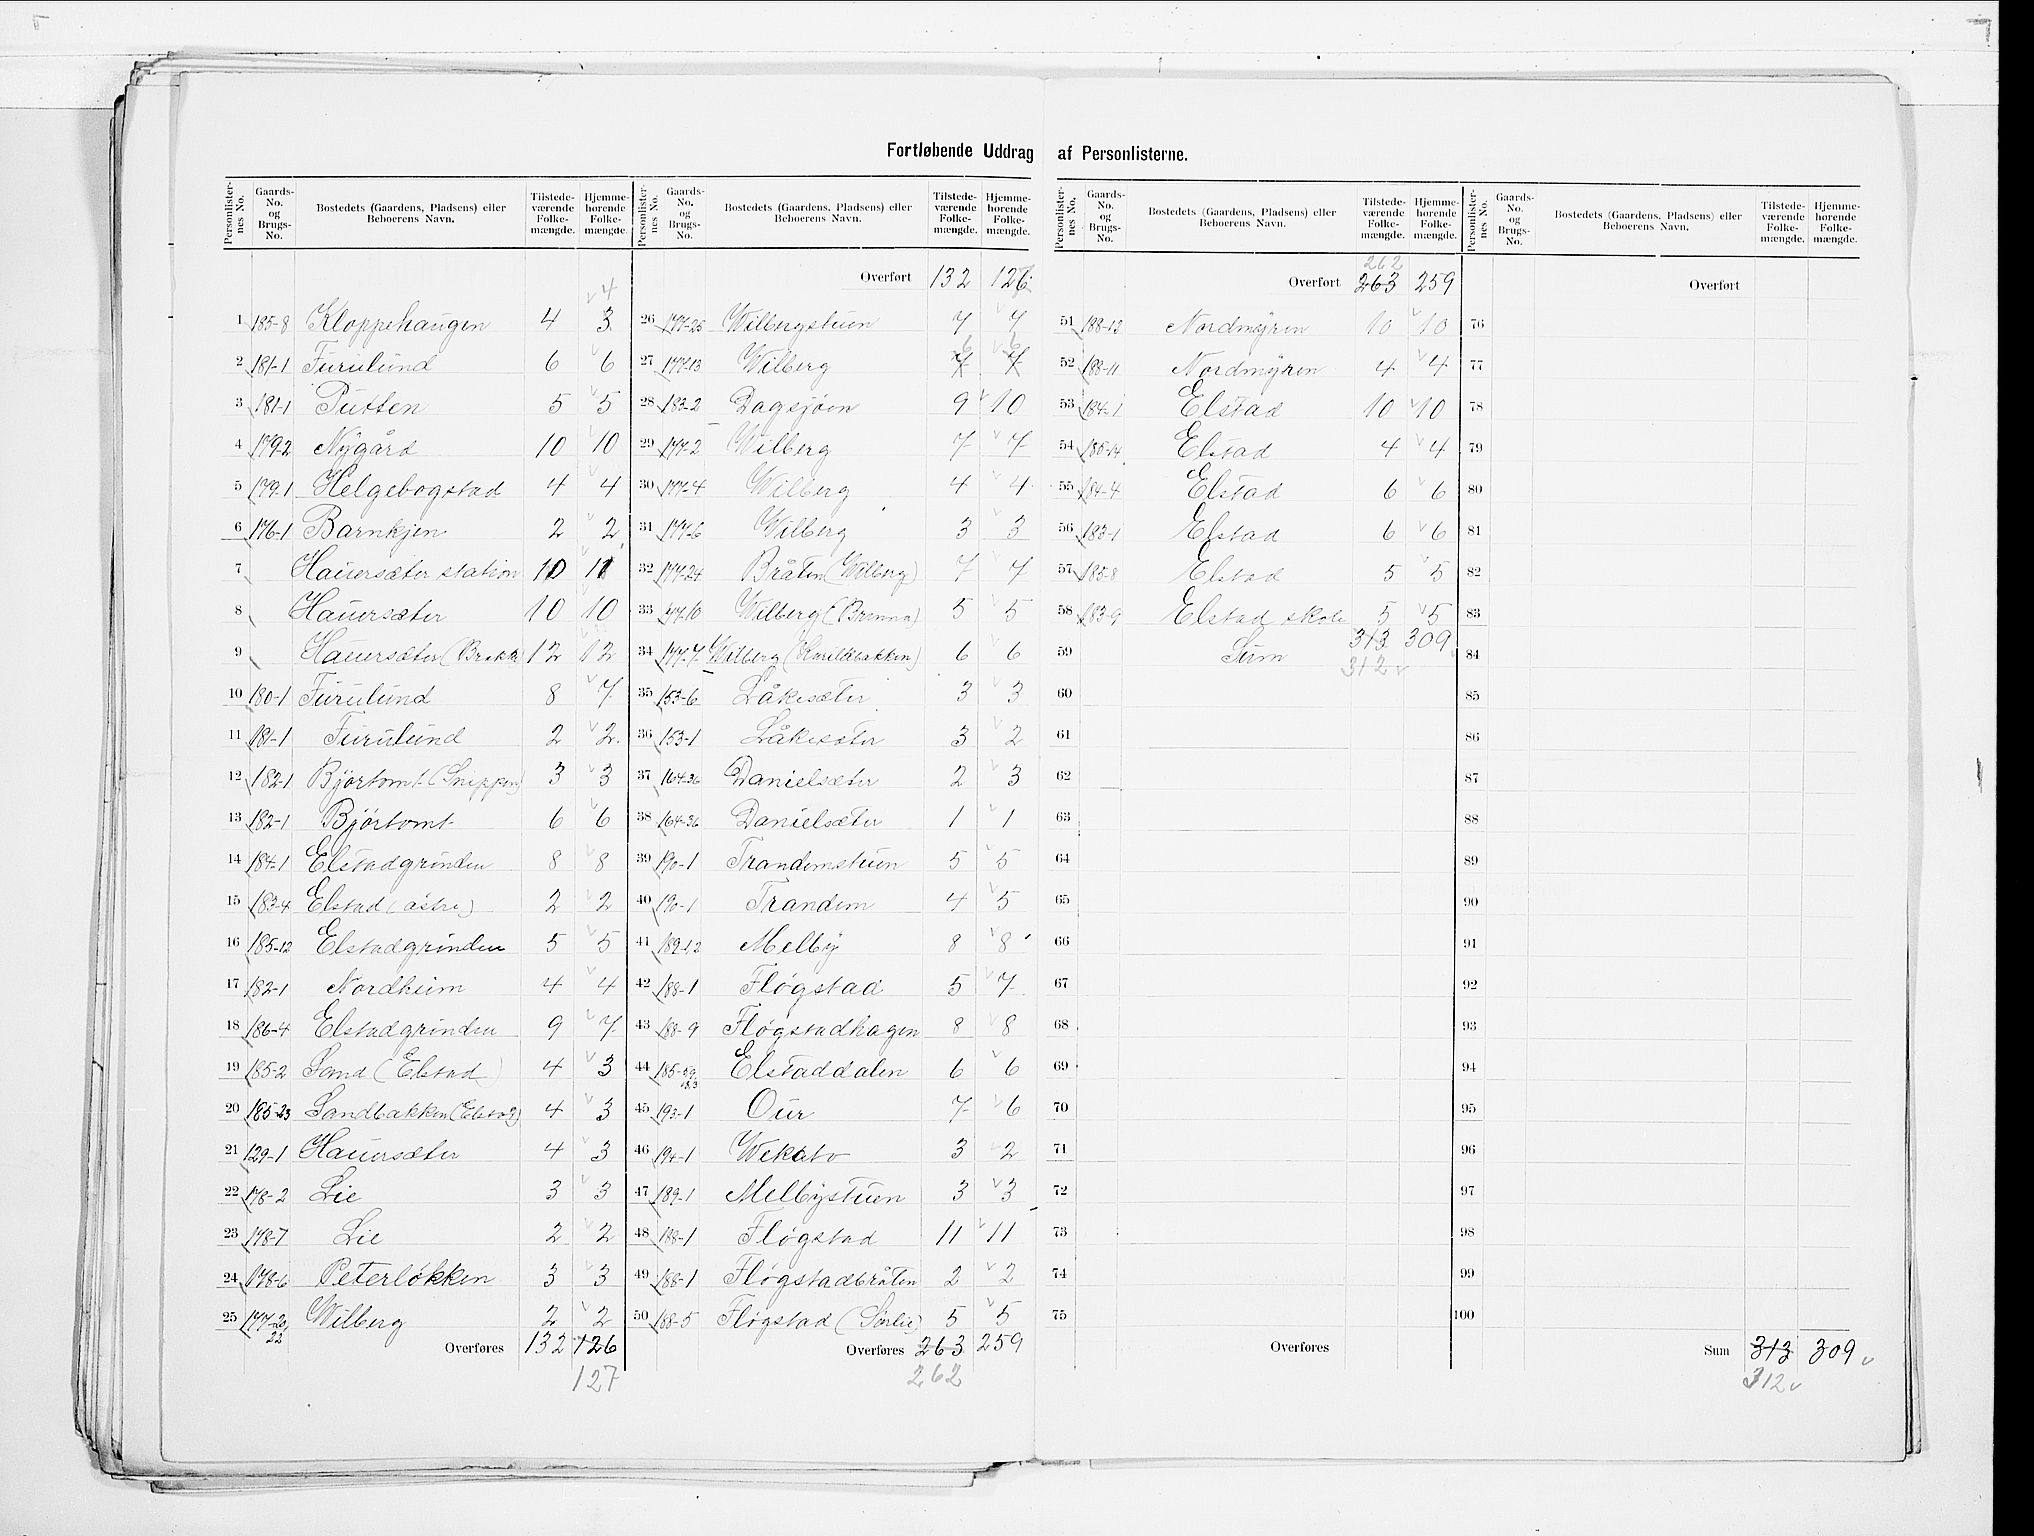 Fortløbende Uddrag af Personlisterne.
Personlisternes No. Gaards-No. og Brugs-No. Bostedets (Gaardens, Pladsens) eller Beboerens Navn. Tilstedeværende Folkemængde. Hjemmehørende Folkemængde.
4
1 185-8 Kloppehaugen 4 3
2 181-1 Furulund 6 6
3 181-1 Putten 5 5
4 179-2 Nygård 10 10
5 179-1 Helgebogstad 4 4
6 176-1 Barnkjen 2 2
7 Hauersæter station 10 11
8 Hauersæter 10 10
9 Hauersæter (Brakke) 12 12
10 180-1 Furulund 8 7
11 181-1 Furulund 2 2
12 182-1 Bjørtomt (Snippen) 3 3
13 182-1 Bjørtomt 6 6
14 184-1 Elstadgrinden 8 8
15 183-4 Elstad (østre) 2 2
16 185-12 Elstadgrinden 5 5
17 182-1 Nordheim 4 4
18 186-4 Elstadgrinden 9 7
19 185-2 Sand (Elstad) 4 3
20 185-23 Sandbakken (Elstad) 4 3
21 129-1 Hauersæter 4 3
22 178-2 Lie 3 3
23 178-7 Lie 2 2
24 178-6 Peterløkken 3 3
25 177-20, 22 Wilberg 2 2
Overføres 132 126
127
Personlisternes No. Gaards-No. og Brugs-No. Bostedets (Gaardens, Pladsens) eller Beboerens Navn. Tilstedeværende Folkemængde. Hjemmehørende Folkemængde.
Overført 132 126
26 177-25 Wilbergstuen 7 7
6 6
27 177-13 Wilberg 7 7
28 183-2 Dagsjøen 9 10
29 177-2 Wilberg 7 7
30 177-4 Wilberg 4 4
31 177-6 Wilberg 3 3
32 177-24 Bråten (Wilberg) 7 7
33 Wilberg (Brenna) 5 5
34 177-7 Wilberg 6 6
35 153-6 Låkesæter 3 3
36 153-1 Låkesæter 3 2
37 164-36 Danielsæter 2 3
38 164-36 Danielsæter 1 1
39 190-1 Trandemstuen 5 5
40 190-1 Trandem 4 5
41 189-1,2 Melby 8 8
42 188-1 Fløgstad 5 7
43 188-9 Fløgstadhagen 8 8
44 185-39 183 Elstaddalen 6 6
45 193-1 Our 7 6
46 194-1 Wekato 3 2
47 189-1 Melbystuen 3 3
48 188-1 Fløgstad 11 11
49 188-1 Fløgstadbråten 2 2
50 188-5 Fløgstad (Sørlie) 5 5
Overføres 263 259
262
Personlisternes No. Gaards-No. og Brugs-No. Bostedets (Gaardens, Pladsens) eller Beboerens Navn. Tilstedeværende Folkemængde. Hjemmehørende Folkemængde.
262
Overført 263 259
51 188-12 Nordmyren 10 10
52 188-11 Nordmyren 4 4
53 184-1 Elstad 10 10
54 185-14 Elstad 4 4
55 184-4 Elstad 6 6
56 183-1 Elstad 6 6
57 185-8 Elstad 5 5
58 183-9 Elstad skole 5 5
59 Sum 313 309
312
60
61
62
63
64
65
66
67
68
69
70
71
72
73
74
75
Overføres
Personlisternes No. Gaards-No. og Brugs-No. Bostedets (Gaardens, Pladsens) eller Beboerens Navn. Tilstedeværende Folkemængde. Hjemmehørende Folkemængde.
Overført
76
77
78
79
80
81
82
83
84
85
86
87
88
89
90
91
92
93
94
95
96
97
98
99
100
Sum 313 309
312